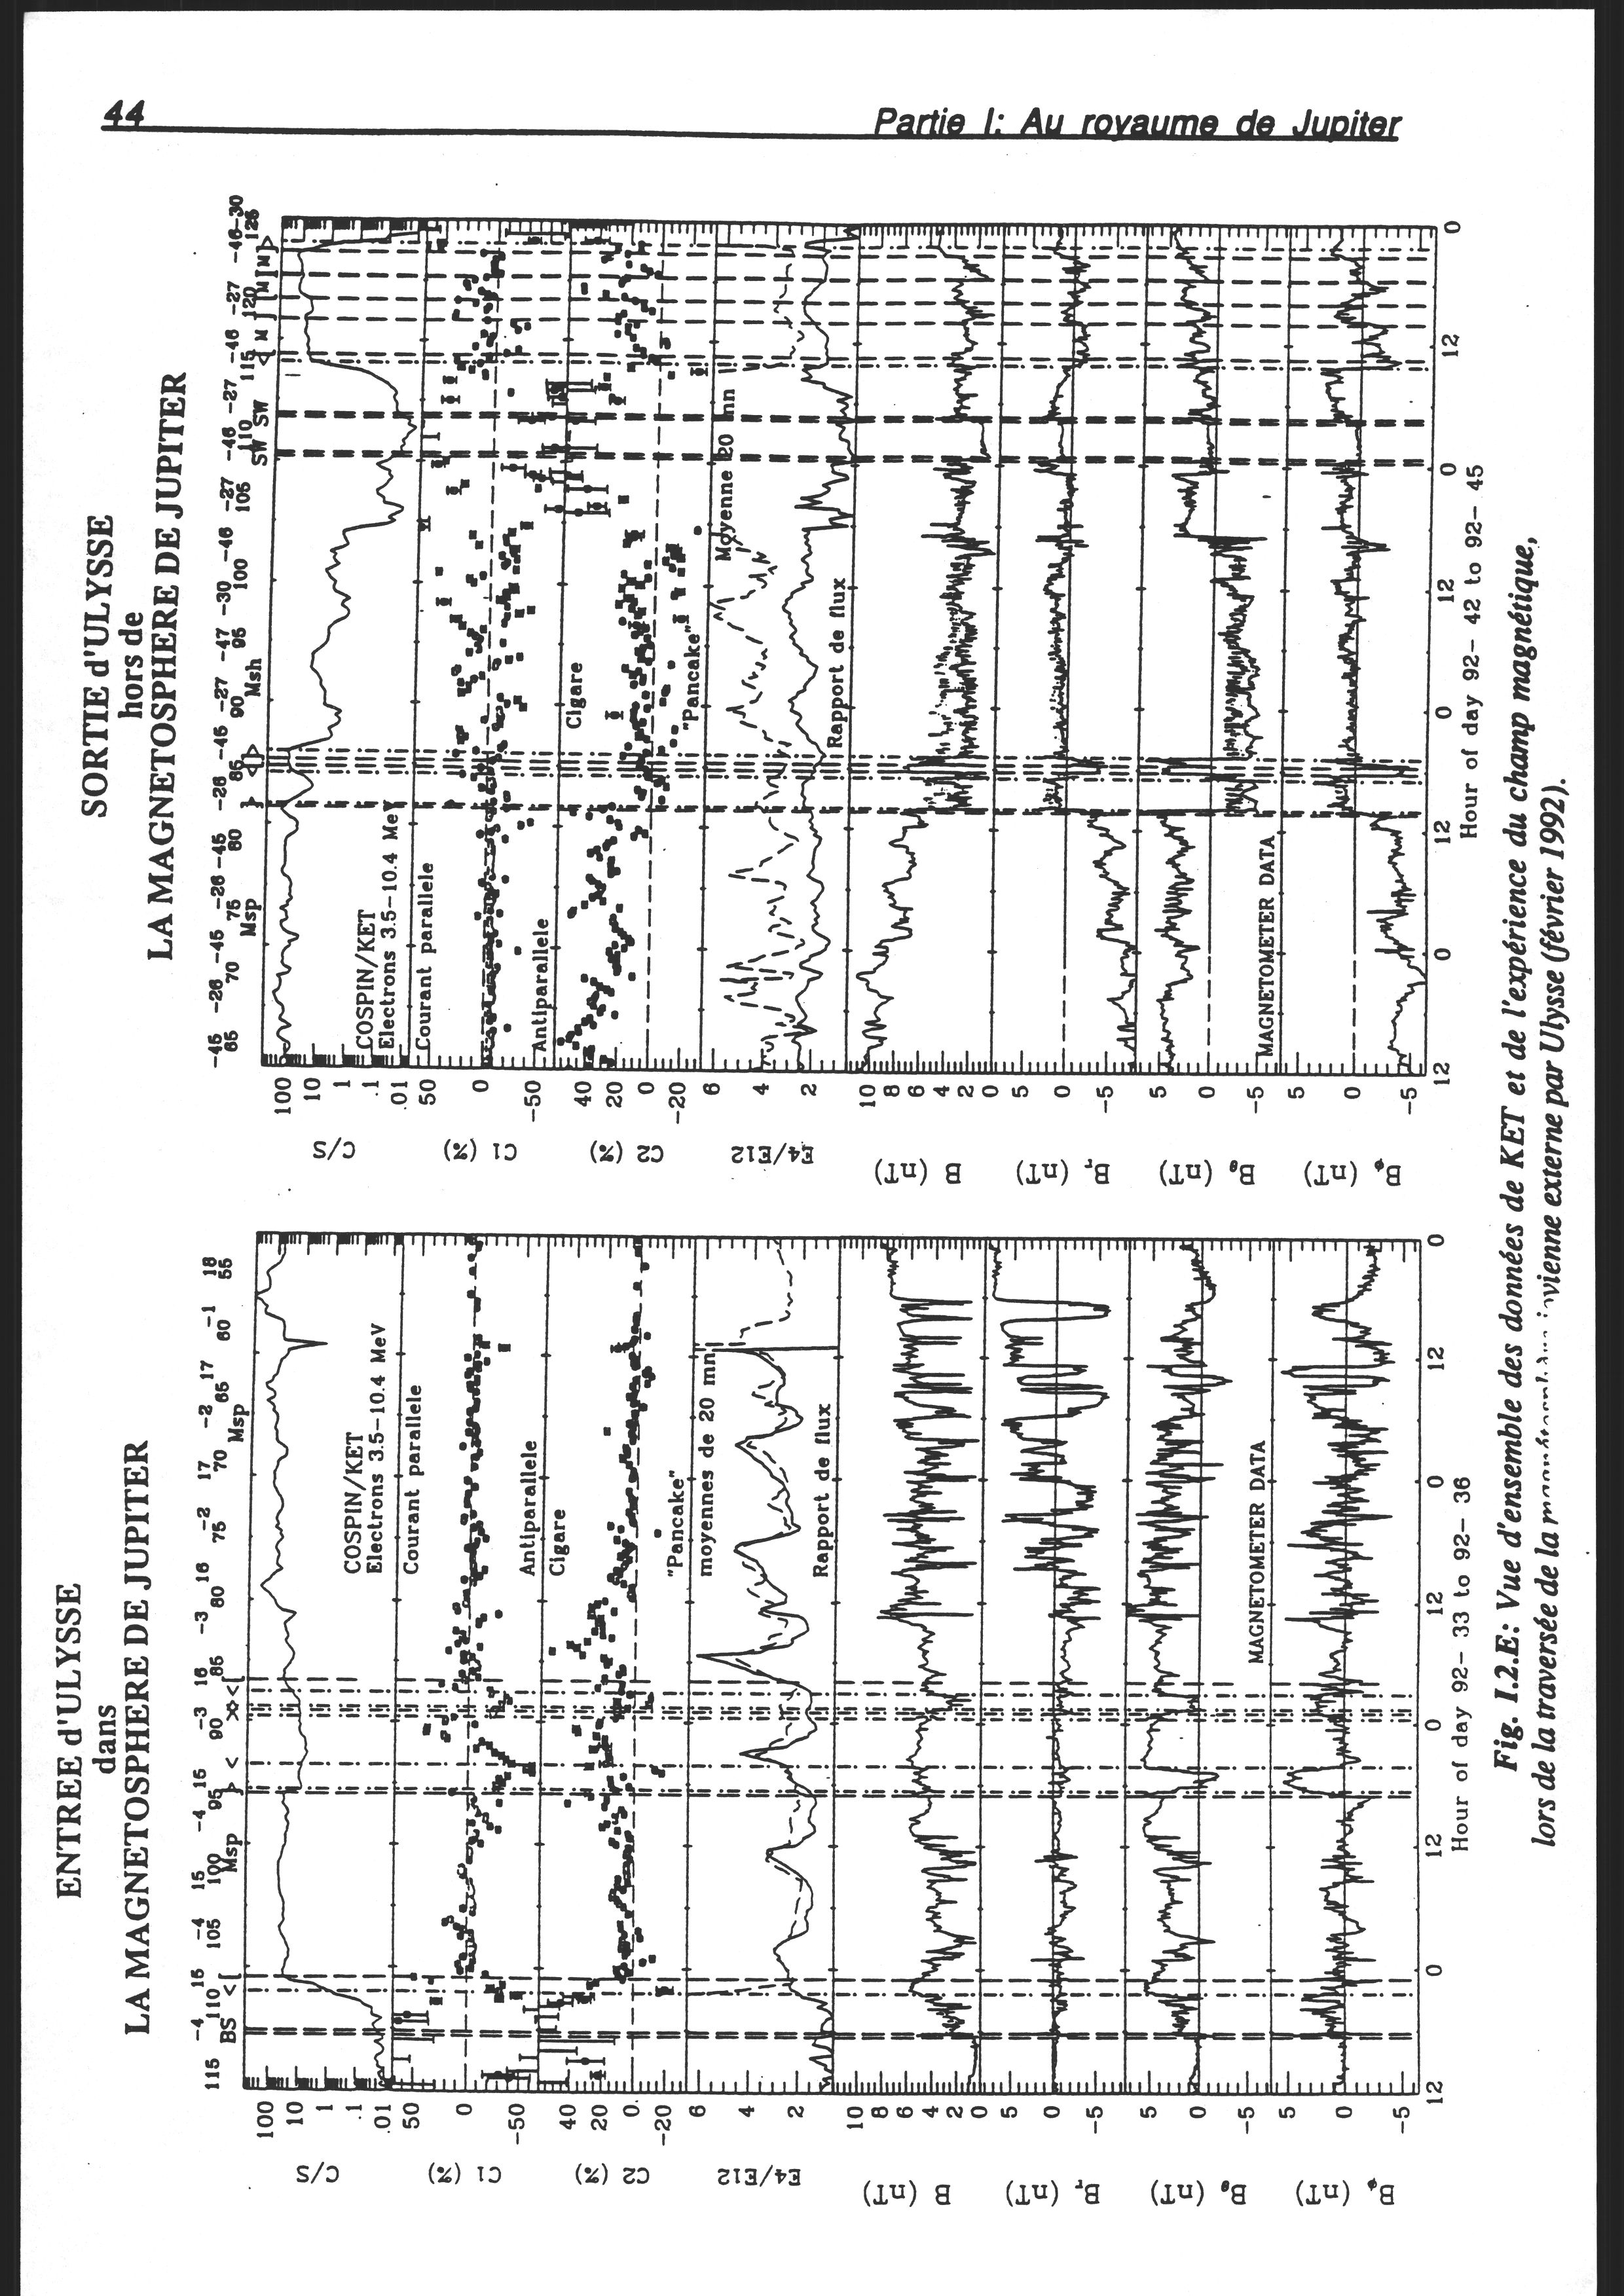 44
Partie I: Au royaume de Jupiter
ENTREE d'ULYSSE
dans
LA MAGNETOSPHERE DE JUPITER
115 -4 110 15 105 -4 100 15 -4 95 16 90 -3 85 16 80 -3 16 75 -2 70 17 65 -2 17 60 -1 55 18
BS < [ Msp > < >> < [ Msp
C/S
100
10
1
.1
.01
COSPIN/KET
Electrons 3.5-10.4 MeV
C1 (%)
50
0
-50
Courant parallele
Antiparallele
C2 (%)
40
20
0
-20
Cigare
"Pancake"
E4/E12
6
4
2
moyennes de 20 mn
Rapport de flux
B (nT)
10
8
6
4
2
0
Br (nT)
5
0
-5
Bθ (nT)
5
0
-5
MAGNETOMETER DATA
Bφ (nT)
5
0
-5
12 0 12 0 12 0 12 0
Hour of day 92- 33 to 92- 36
SORTIE d'ULYSSE
hors de
LA MAGNETOSPHERE DE JUPITER
-45 -26 -45 -26 -45 -26 -45 -27 -47 -30 -46 -27 -46 -27 -46 -27 -46 -30
65 70 75 80 85 90 95 100 105 110 115 120 125
Msp Msh SW SW < M ] M [ M ] >
C/S
100
10
1
.1
.01
COSPIN/KET
Electrons 3.5-10.4 MeV
C1 (%)
50
0
-50
Courant parallele
Antiparallele
C2 (%)
40
20
0
-20
Cigare
"Pancake"
E4/E12
6
4
2
Moyenne 20 mn
Rapport de flux
B (nT)
10
8
6
4
2
0
Br (nT)
5
0
-5
Bθ (nT)
5
0
-5
MAGNETOMETER DATA
Bφ (nT)
5
0
-5
12 0 12 0 12 0 12 0
Hour of day 92- 42 to 92- 45
Fig. I.2.E: Vue d'ensemble des données de KET et de l'expérience du champ magnétique,
lors de la traversée de la jovienne externe par Ulysse (février 1992).